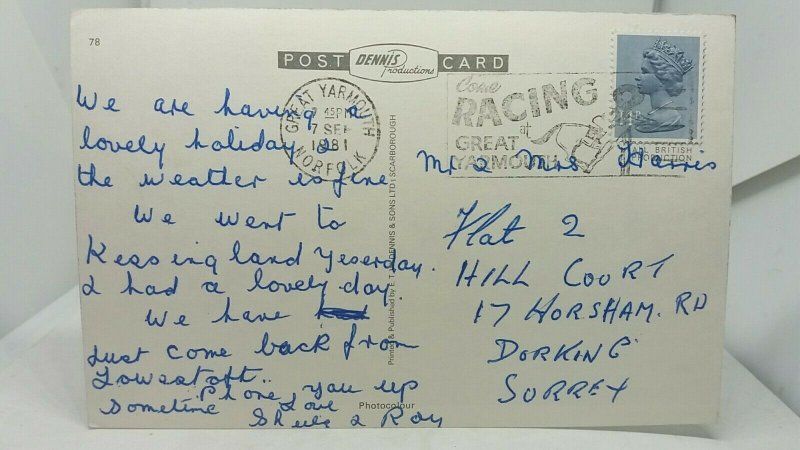 78
POST DENNIS Productions CARD
GREAT YARMOUTH
45PM
7 SEP
1981
NORFOLK
Come
RACING
at
GREAT
YARMOUTH
ALL BRITISH
PRODUCTION
We are having a
lovely holiday &
the weather is fine
We went to
Kessingland Yeserday.
& had a lovely day.
We have
Just come back from
Lowestoft..
Phone you up
Sometime Love
& Ray
Printed & Published by E.T.W. DENNIS & SONS LTD SCARBOROUGH
Photocolour
Mr & Mrs Harris
Flat 2
HILL COURT
17 HORSHAM. RD
DORKING
SURREY